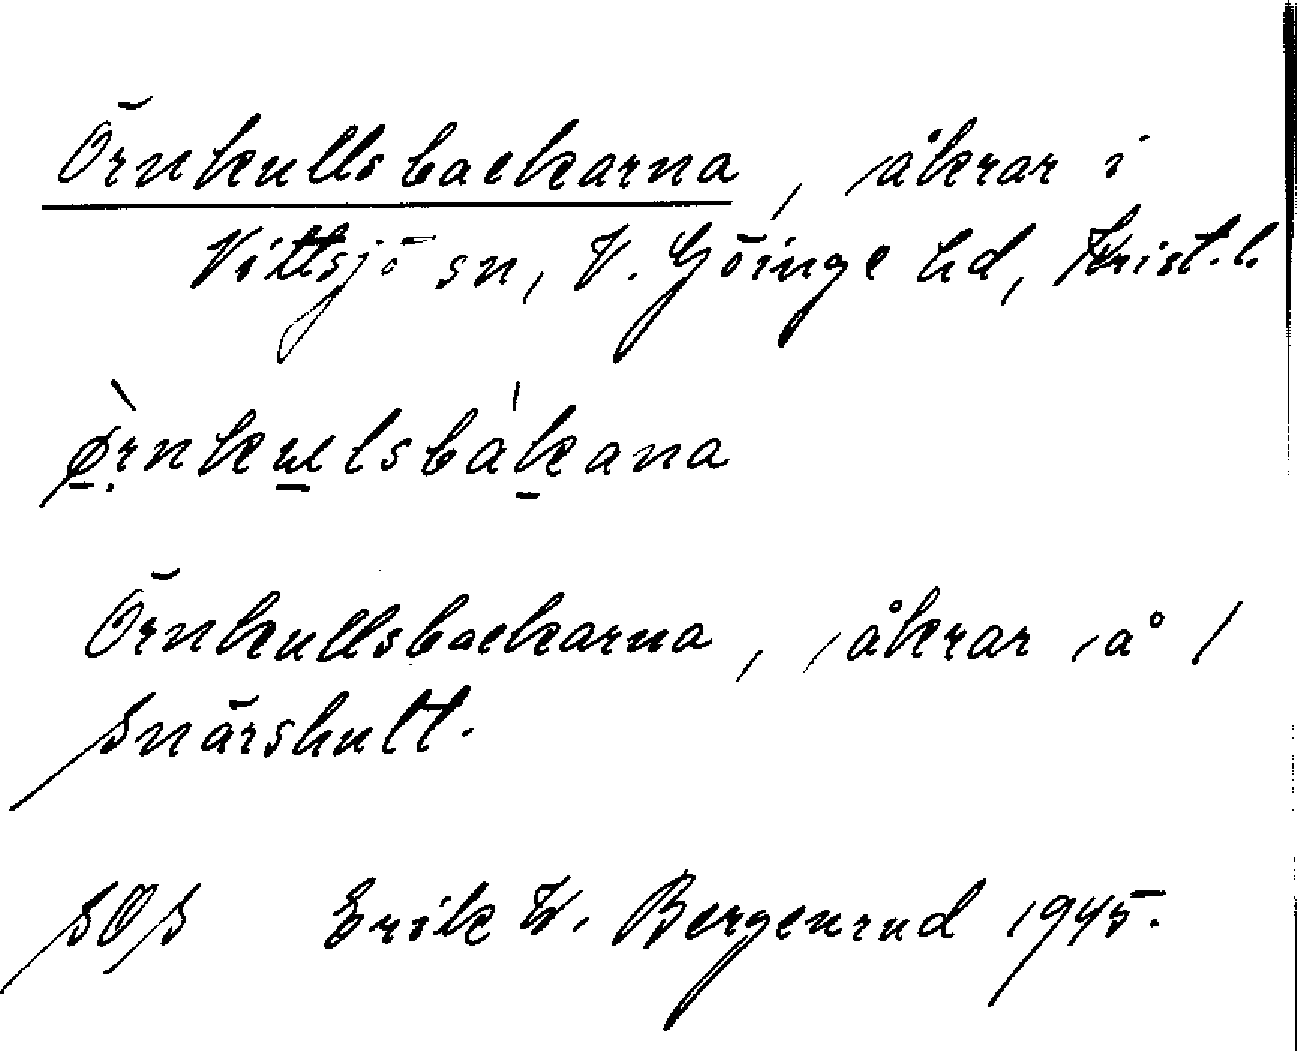 Örnkullsbackarna, åkrar i
Vittsjö sn, V. Göinge hd, Krist. l.
ø̀rnkulsbákana
Örnkullsbackarna, åkrar å /
Snärshult.
SOS Erik W. Bergenrud 1945.